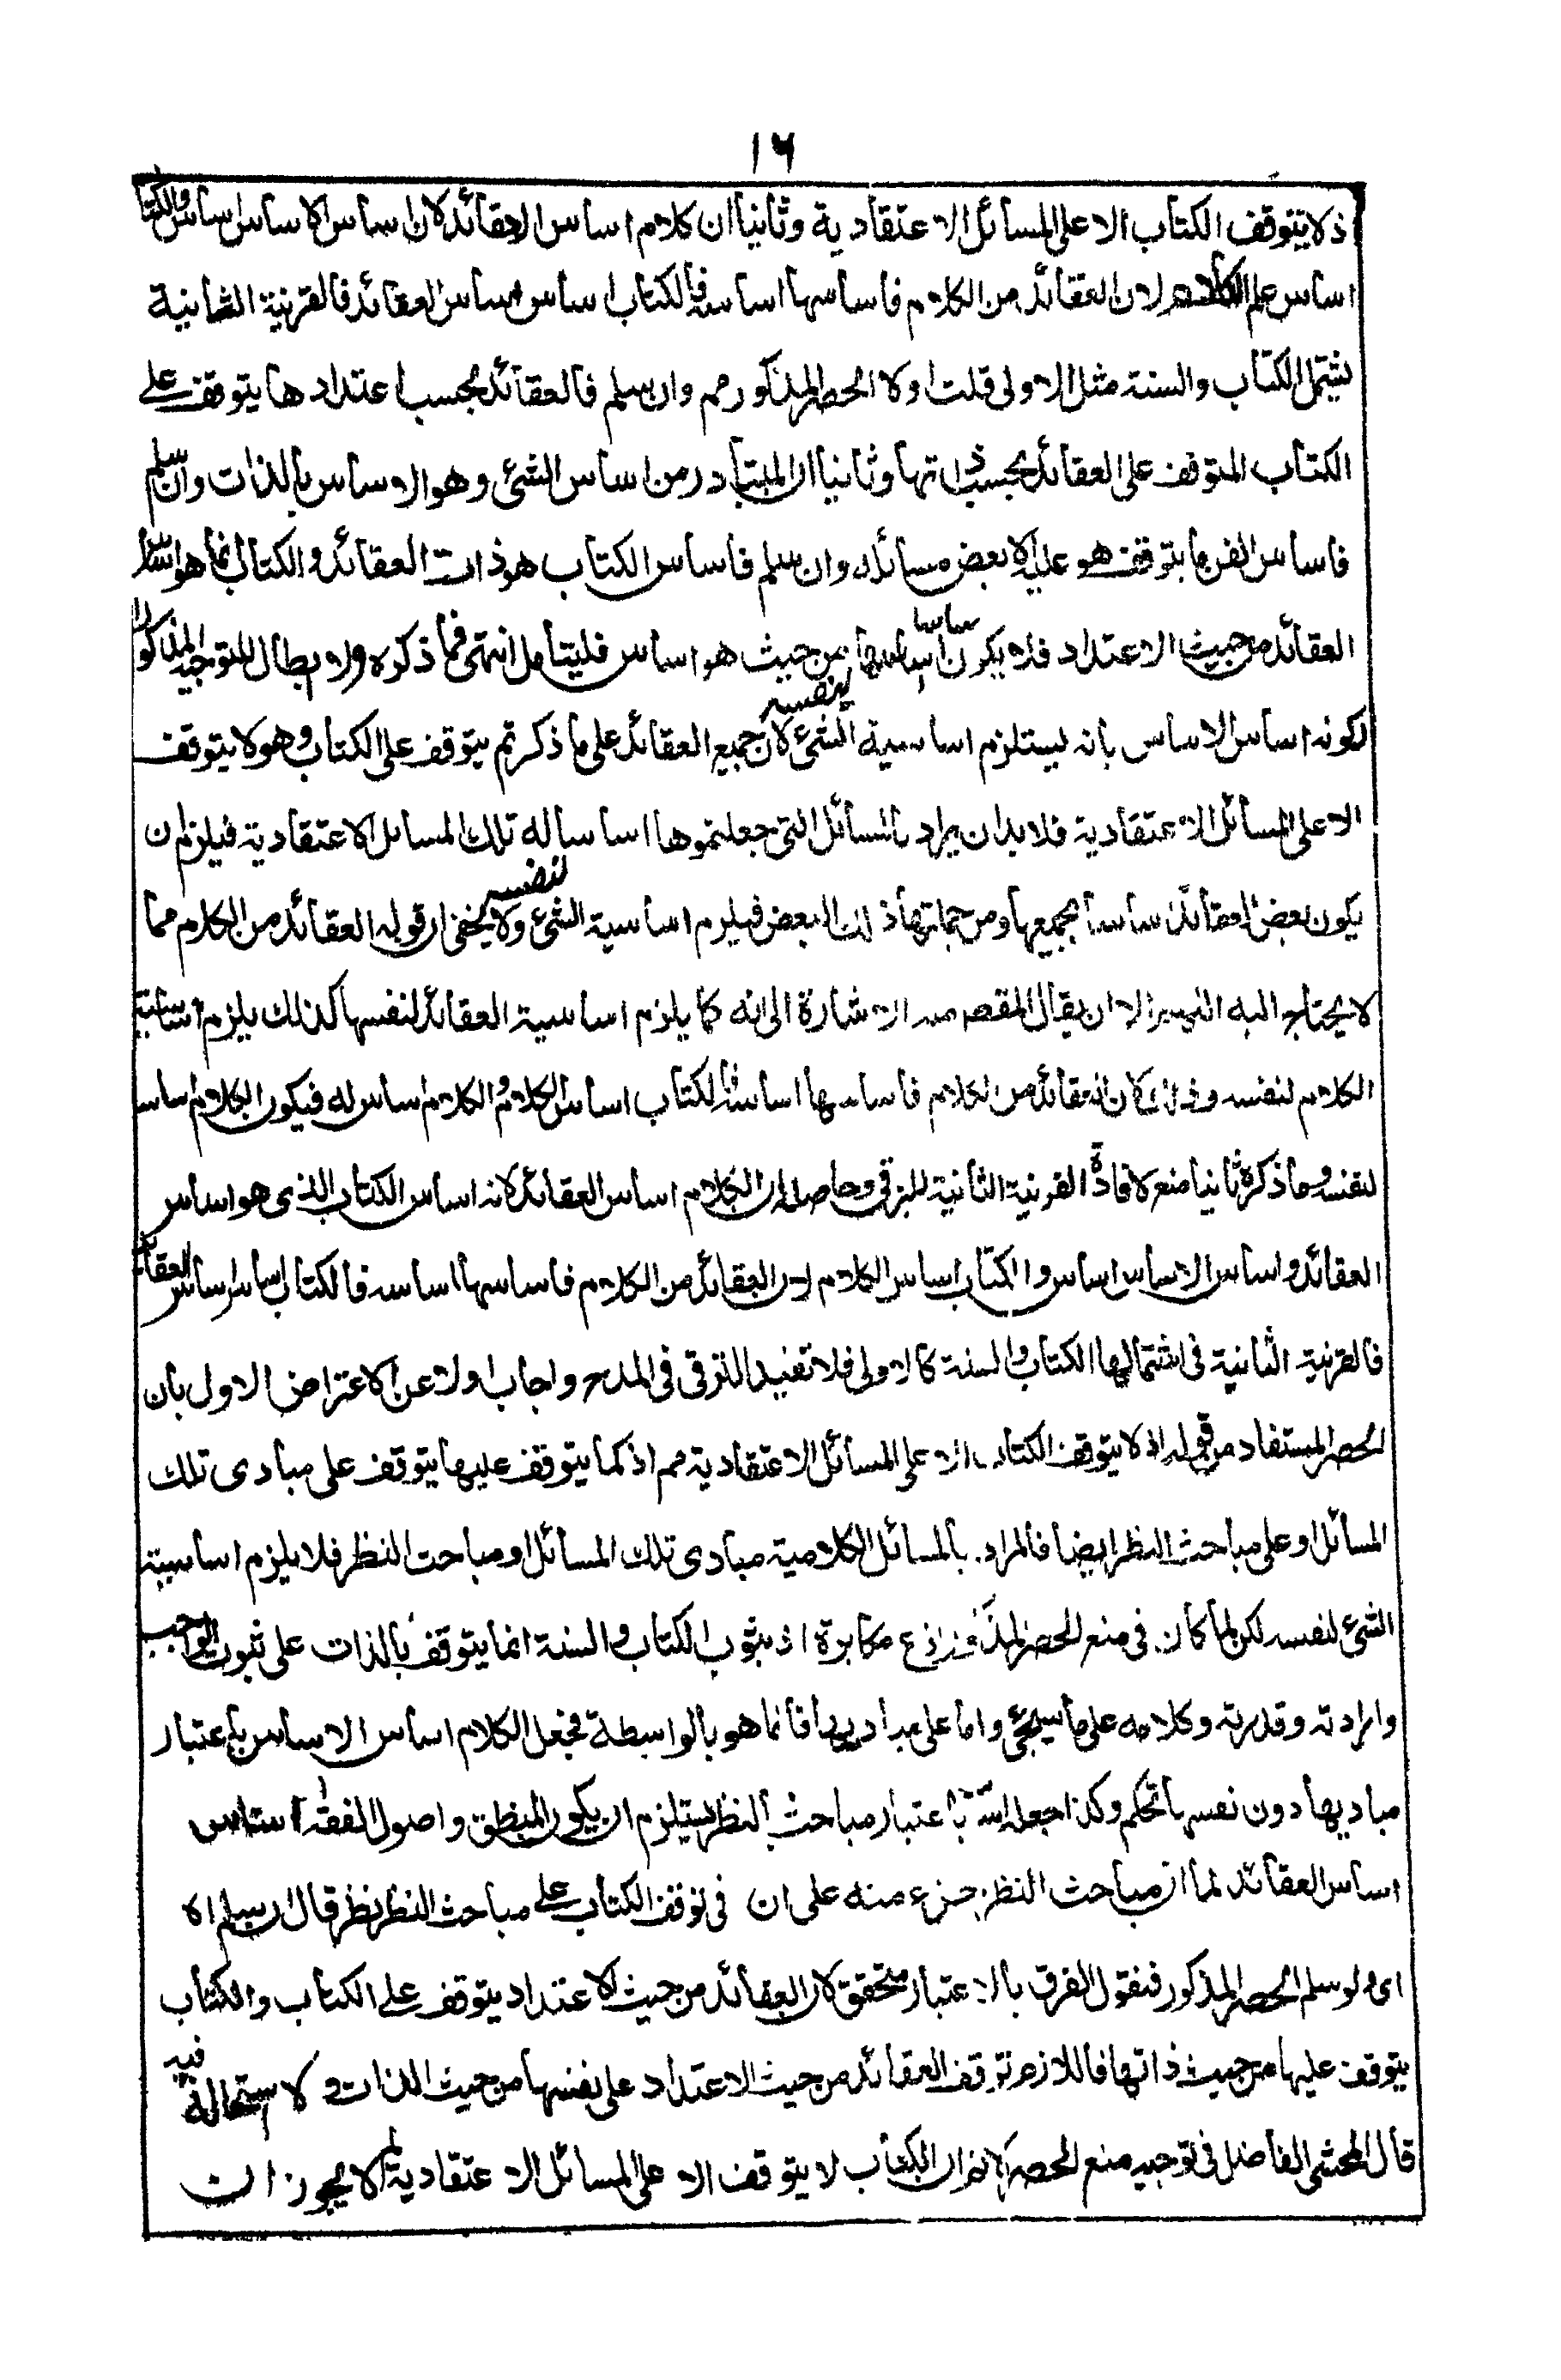 ١٦
ذ لا يتوقف الكتاب الا على المسائل الاعتقادية وثانيا ان كلام اساس العقائد لان اساس الاساس اساس والكتاب
اساس علم الكلام لان العقائد من الكلام فاساسها اساسه فالكتاب اساس اساس العقائد فالقرينة الثانية
يشتمل الكتاب والسنة مثل الاولى قلت اولا الحصر المذكور مم وان سلم فالعقائد بحسب اعتدادها يتوقف على
الكتاب المتوقف على العقائد بحسب ذاتها وثانيا ان المتبادر من اساس الشئ وهو الاساس بالذات وان سلم
فاساس الفن ما يتوقف هو عليه لا بعض مسائله وان سلم فاساس الكتاب هو ذات العقائد والكتاب انما هو اساس
العقائد من حيث الاعتداد فلا يكون اساسا من حيث هو اساس فليتأمل انتهى فما ذكره ولا بطال للتوجيه المذكور
لكونه اساس الاساس بانه يستلزم اساسية الشئ لنفسه لان جميع العقائد على ما ذكرتم يتوقف على الكتاب وهو لا يتوقف
الا على المسائل الاعتقادية فلا بد ان يراد بالمسائل التى جعلتموها اساسا له تلك المسائل الاعتقادية فيلزم ان
يكون بعض العقائد اساسا لجميعها ومن جملتها ذلك البعض فيلزم اساسية الشئ لنفسه ولا يخفى ان قوله العقائد من الكلام مما
لا يحتاج اليه الا ان يقال المقصد الاشارة الى انه كما يلزم اساسية العقائد لنفسها كذلك يلزم اساسية
الكلام لنفسه وذلك لان العقائد من الكلام فاساسها اساسه فالكتاب اساس الكلام والكلام اساس له فيكون الكلام اساسا
لنفسه وما ذكره ثانيا منع لافادة القرينة الثانية للترقى وحاصله ان الكلام اساس العقائد لانه اساس الكتاب الذى هو اساس
العقائد واساس الاساس اساس والكتاب اساس الكلام لان العقائد من الكلام فاساسها اساسه فالكتاب اساس اساس العقائد
فالقرينة الثانية فى اشتمالها الكتاب والسنة كالاولى فلا تفيد الترقى فى المدح واجاب اولا عن الاعتراض الاول بان
الحصر المستفاد من قوله اذ لا يتوقف الكتاب الا على المسائل الاعتقادية مم اذ كما يتوقف عليها يتوقف على مبادى تلك
المسائل او على مباحث النظر ايضا فالمراد بالمسائل الكلامية مبادى تلك المسائل او مباحث النظر فلا يلزم اساسية
الشئ لنفسه لكن لما كان فى منع الحصر المذكور مكابرة اذ ثبوت الكتاب والسنة انما يتوقف بالذات على ثبوت الواجب
وارادته وقدرته وكلامه على ما سيجئ واما على مباديها فانما هو بالواسطة فجعل الكلام اساس الاساس باعتبار
مباديها دون نفسها تحكم وكذا جعله اساسا باعتبار مباحث النظر يستلزم ان يكون المنطق واصول الفقه اساس
اساس العقائد لما ان مباحث النظر جزء منه على ان فى توقف الكتاب على مباحث النظر نظر قال ان سلم اه
اى لو سلم الحصر المذكور فنقول الفرق بالاعتبار متحقق لان العقائد من حيث الاعتداد يتوقف على الكتاب والكتاب
يتوقف عليها من حيث ذاتها فاللازم توقف العقائد من حيث الاعتداد على نفسها من حيث الذات ولا استحالة فيه
قال المحشى الفاضل فى توجيه منع الحصر لانم ان الكتاب لا يتوقف الا على المسائل الاعتقادية لم لا يجوز ان